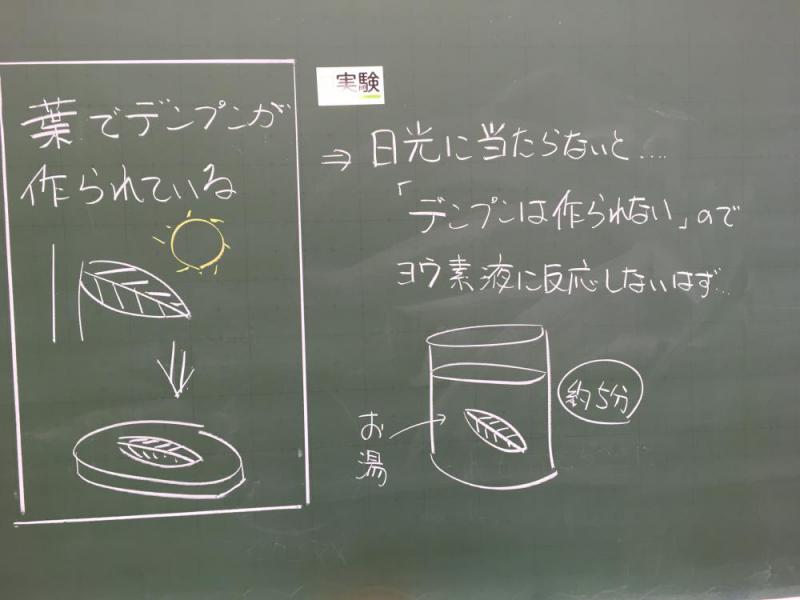 葉でデンプンが
作られている
実験
⇒ 日光に当たらないと....
「デンプンは作られない」ので
ヨウ素液に反応しないはず...
お湯
約5分